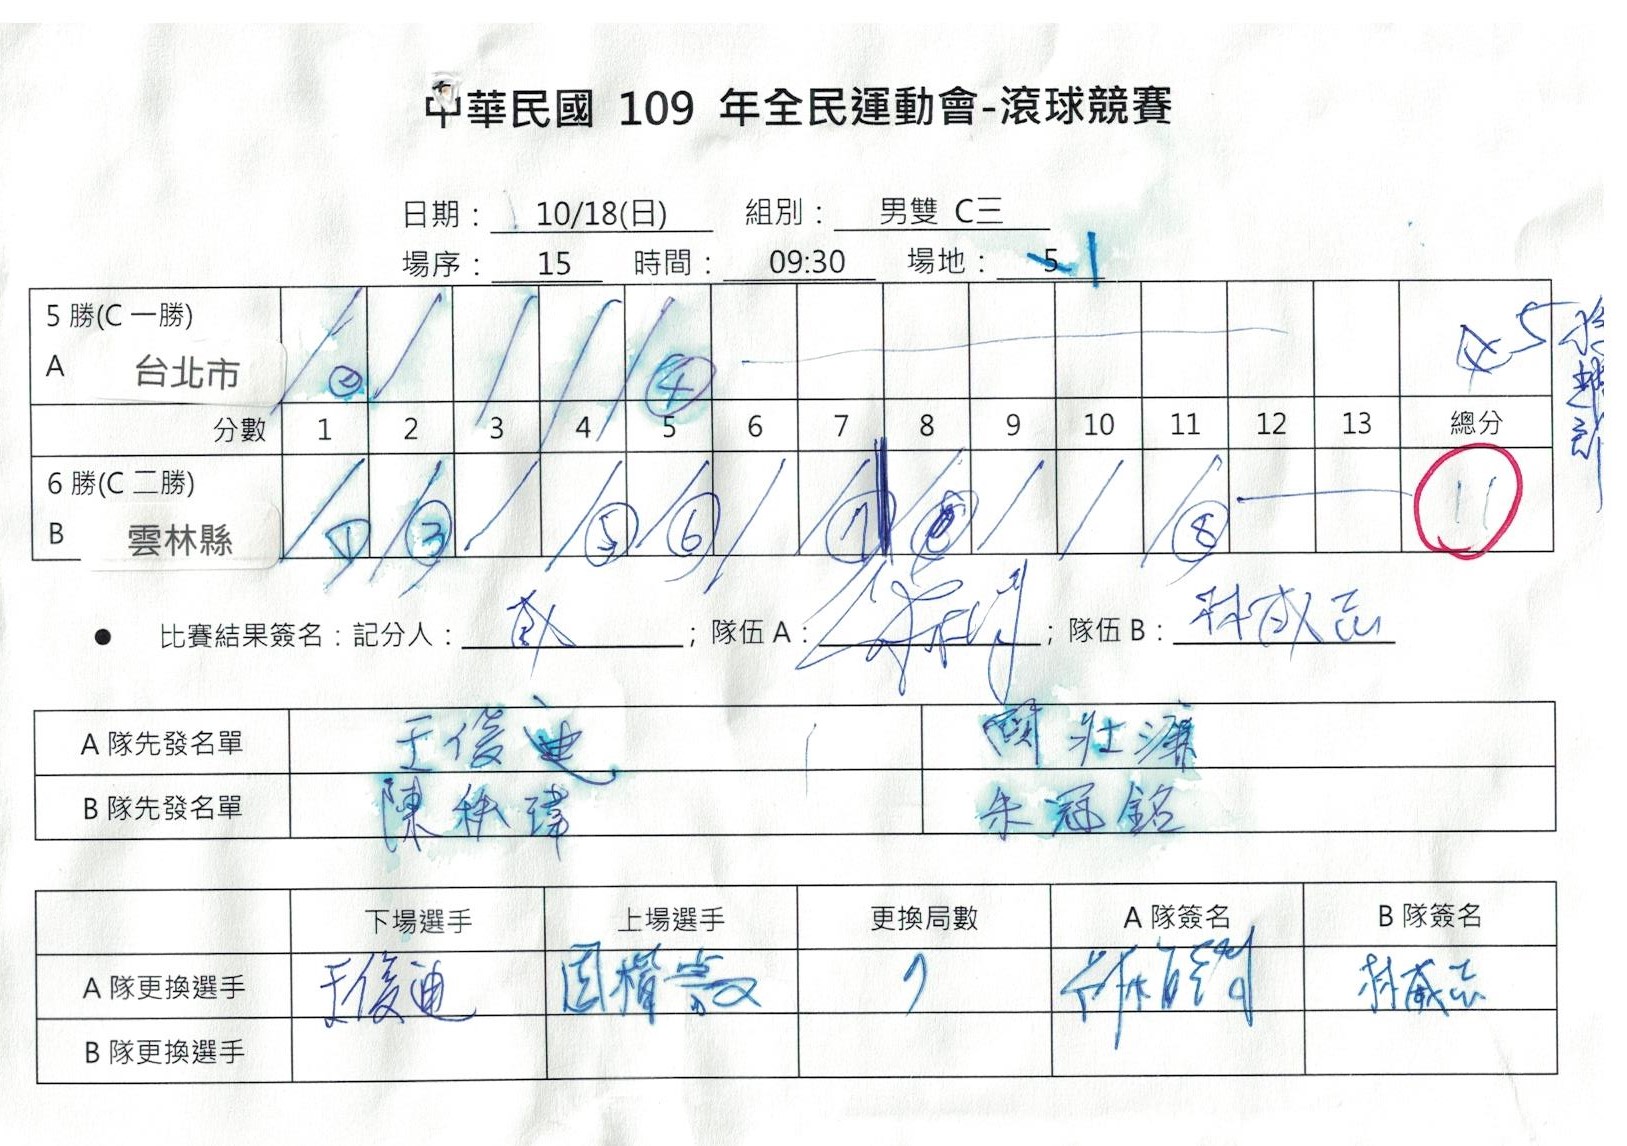 中華民國 109 年全民運動會-滾球競賽
日期： 10/18(日) 組別： 男雙 C三
場序： 15 時間： 09:30 場地： 5 1
5 勝(C 一勝)
A 台北市 ② ④ 4 5
分數 1 2 3 4 5 6 7 8 9 10 11 12 13 總分
6 勝(C 二勝)
B 雲林縣 ① ③ ⑤ ⑥ ⑦ ⑧ 11
● 比賽結果簽名：記分人： ；隊伍 A： ；隊伍 B： 林威志
A 隊先發名單 王俊迪
B 隊先發名單 陳秋瑋 朱冠銘
下場選手 上場選手 更換局數 A 隊簽名 B 隊簽名
A 隊更換選手 王俊迪 7 林威志
B 隊更換選手